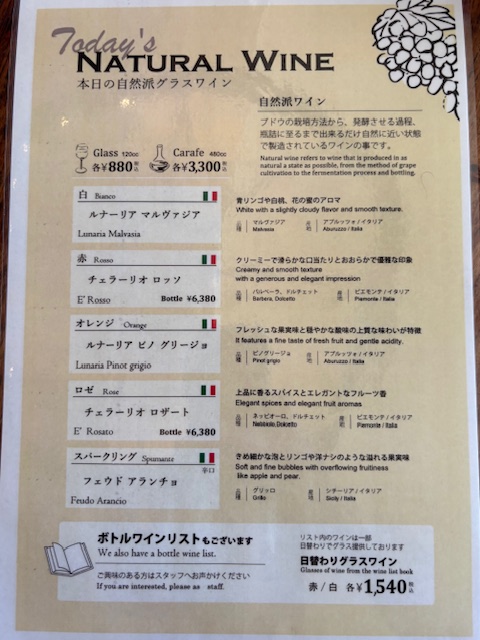 Today's
NATURAL WINE
本日の自然派グラスワイン
自然派ワイン
ブドウの栽培方法から、発酵させる過程、
瓶詰に至るまで出来るだけ自然に近い状態
で製造されているワインの事です。
Natural wine refers to wine that is produced in as
natural a state as possible, from the method of grape
cultivation to the fermentation process and bottling.
Glass 120cc
各¥880税込
Carafe 480cc
各¥3,300税込
白 Bianco
ルナーリア マルヴァジア
Lunaria Malvasia
青リンゴや白桃、花の蜜のアロマ
White with a slightly cloudy flavor and smooth texture.
品種 マルヴァジア 産地 アブルッツォ / イタリア
Malvasia Aburuzzo / Italia
赤 Rosso
チェラーリオ ロッソ
E' Rosso Bottle ¥6,380
クリーミーで滑らかな口当たりとおおらかで優雅な印象
Creamy and smooth texture
with a generous and elegant impression
品種 バルベーラ、ドルチェット 産地 ピエモンテ / イタリア
Barbera, Dolcetto Piemonte / Italia
オレンジ Orange
ルナーリア ピノ グリージョ
Lunaria Pinot grigio
フレッシュな果実味と穏やかな酸味の上質な味わいが特徴
It features a fine taste of fresh fruit and gentle acidity.
品種 ピノグリージョ 産地 アブルッツォ / イタリア
Pinot grigio Aburuzzo / Italia
ロゼ Rose
チェラーリオ ロザート
E' Rosato Bottle ¥6,380
上品に香るスパイスとエレガントなフルーツ香
Elegant spices and elegant fruit aromas
品種 ネッビオーロ、ドルチェット 産地 ピエモンテ / イタリア
Nebbiolo,Dolcetto Piemonte / Italia
スパークリング Spumante
辛口
フェウド アランチョ
Feudo Arancio
きめ細かな泡とリンゴや洋ナシのような溢れる果実味
Soft and fine bubbles with overflowing fruitiness
like apple and pear.
品種 グリッロ 産地 シチーリア / イタリア
Grillo Sicily / Italia
ボトルワインリストもございます
We also have a bottle wine list.
ご興味のある方はスタッフへお声かけください
If you are interested, please as staff.
リスト内のワインは一部
日替わりでグラス提供しております
日替わりグラスワイン
Glasses of wine from the wine list book
赤 / 白 各¥1,540税込